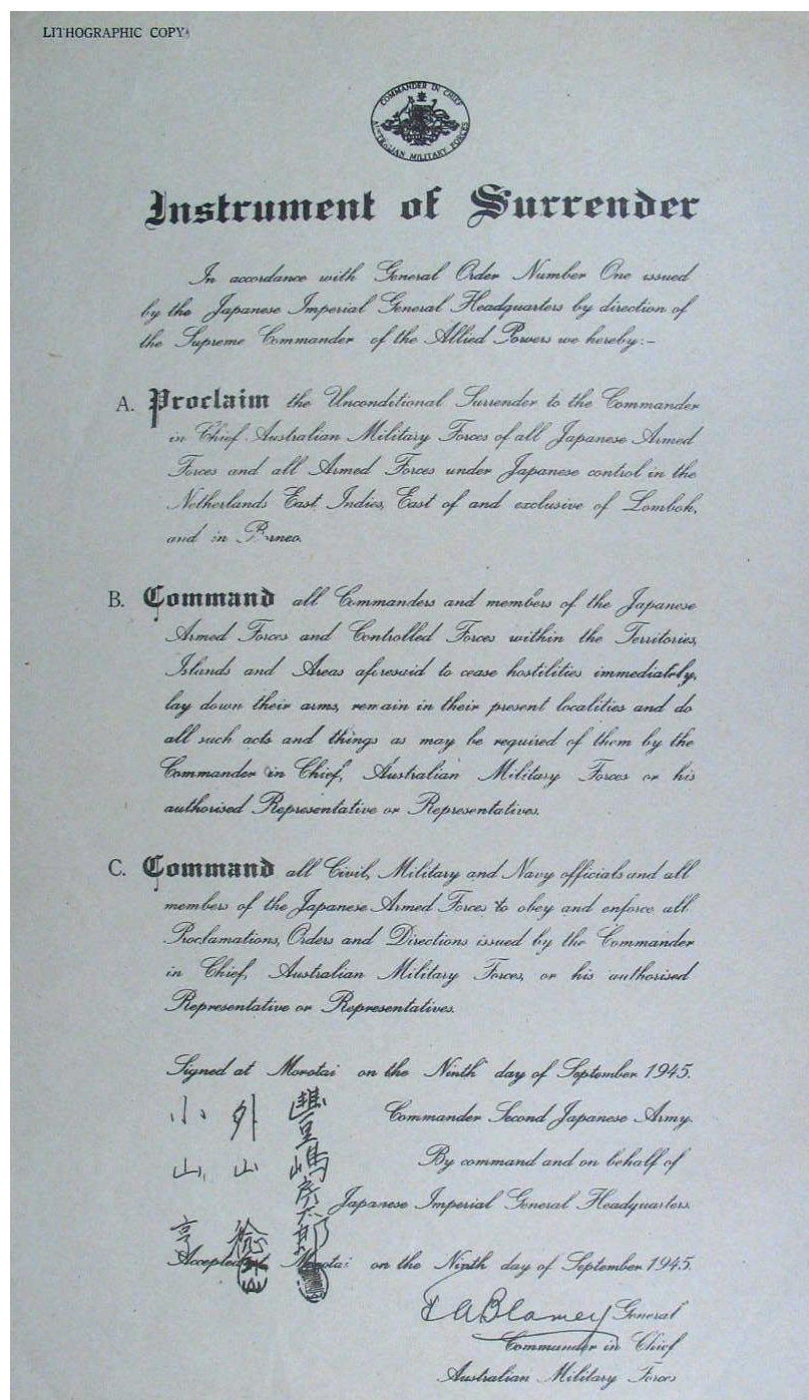 LITHOGRAPHIC COPY
COMMANDER IN CHIEF
AUSTRALIAN MILITARY FORCES
Instrument of Surrender
In accordance with General Order Number One issued
by the Japanese Imperial General Headquarters by direction of
the Supreme Commander of the Allied Powers we hereby:-
A. Proclaim the Unconditional Surrender to the Commander
in Chief Australian Military Forces of all Japanese Armed
Forces and all Armed Forces under Japanese control in the
Netherlands East Indies, East of and exclusive of Lombok,
and in Borneo.
B. Command all Commanders and members of the Japanese
Armed Forces and Controlled Forces within the Territories,
Islands and Areas aforesaid to cease hostilities immediately,
lay down their arms, remain in their present localities and do
all such acts and things as may be required of them by the
Commander in Chief, Australian Military Forces or his
authorised Representative or Representatives.
C. Command all Civil, Military and Navy officials and all
members of the Japanese Armed Forces to obey and enforce all
Proclamations, Orders and Directions issued by the Commander
in Chief, Australian Military Forces, or his authorised
Representative or Representatives.
Signed at Morotai on the Ninth day of September 1945.
Commander Second Japanese Army.
By command and on behalf of
Japanese Imperial General Headquarters.
豊嶋房太郎
外山
小山亨
Accepted at Morotai on the Ninth day of September 1945.
TABlamey General
Commander in Chief
Australian Military Forces